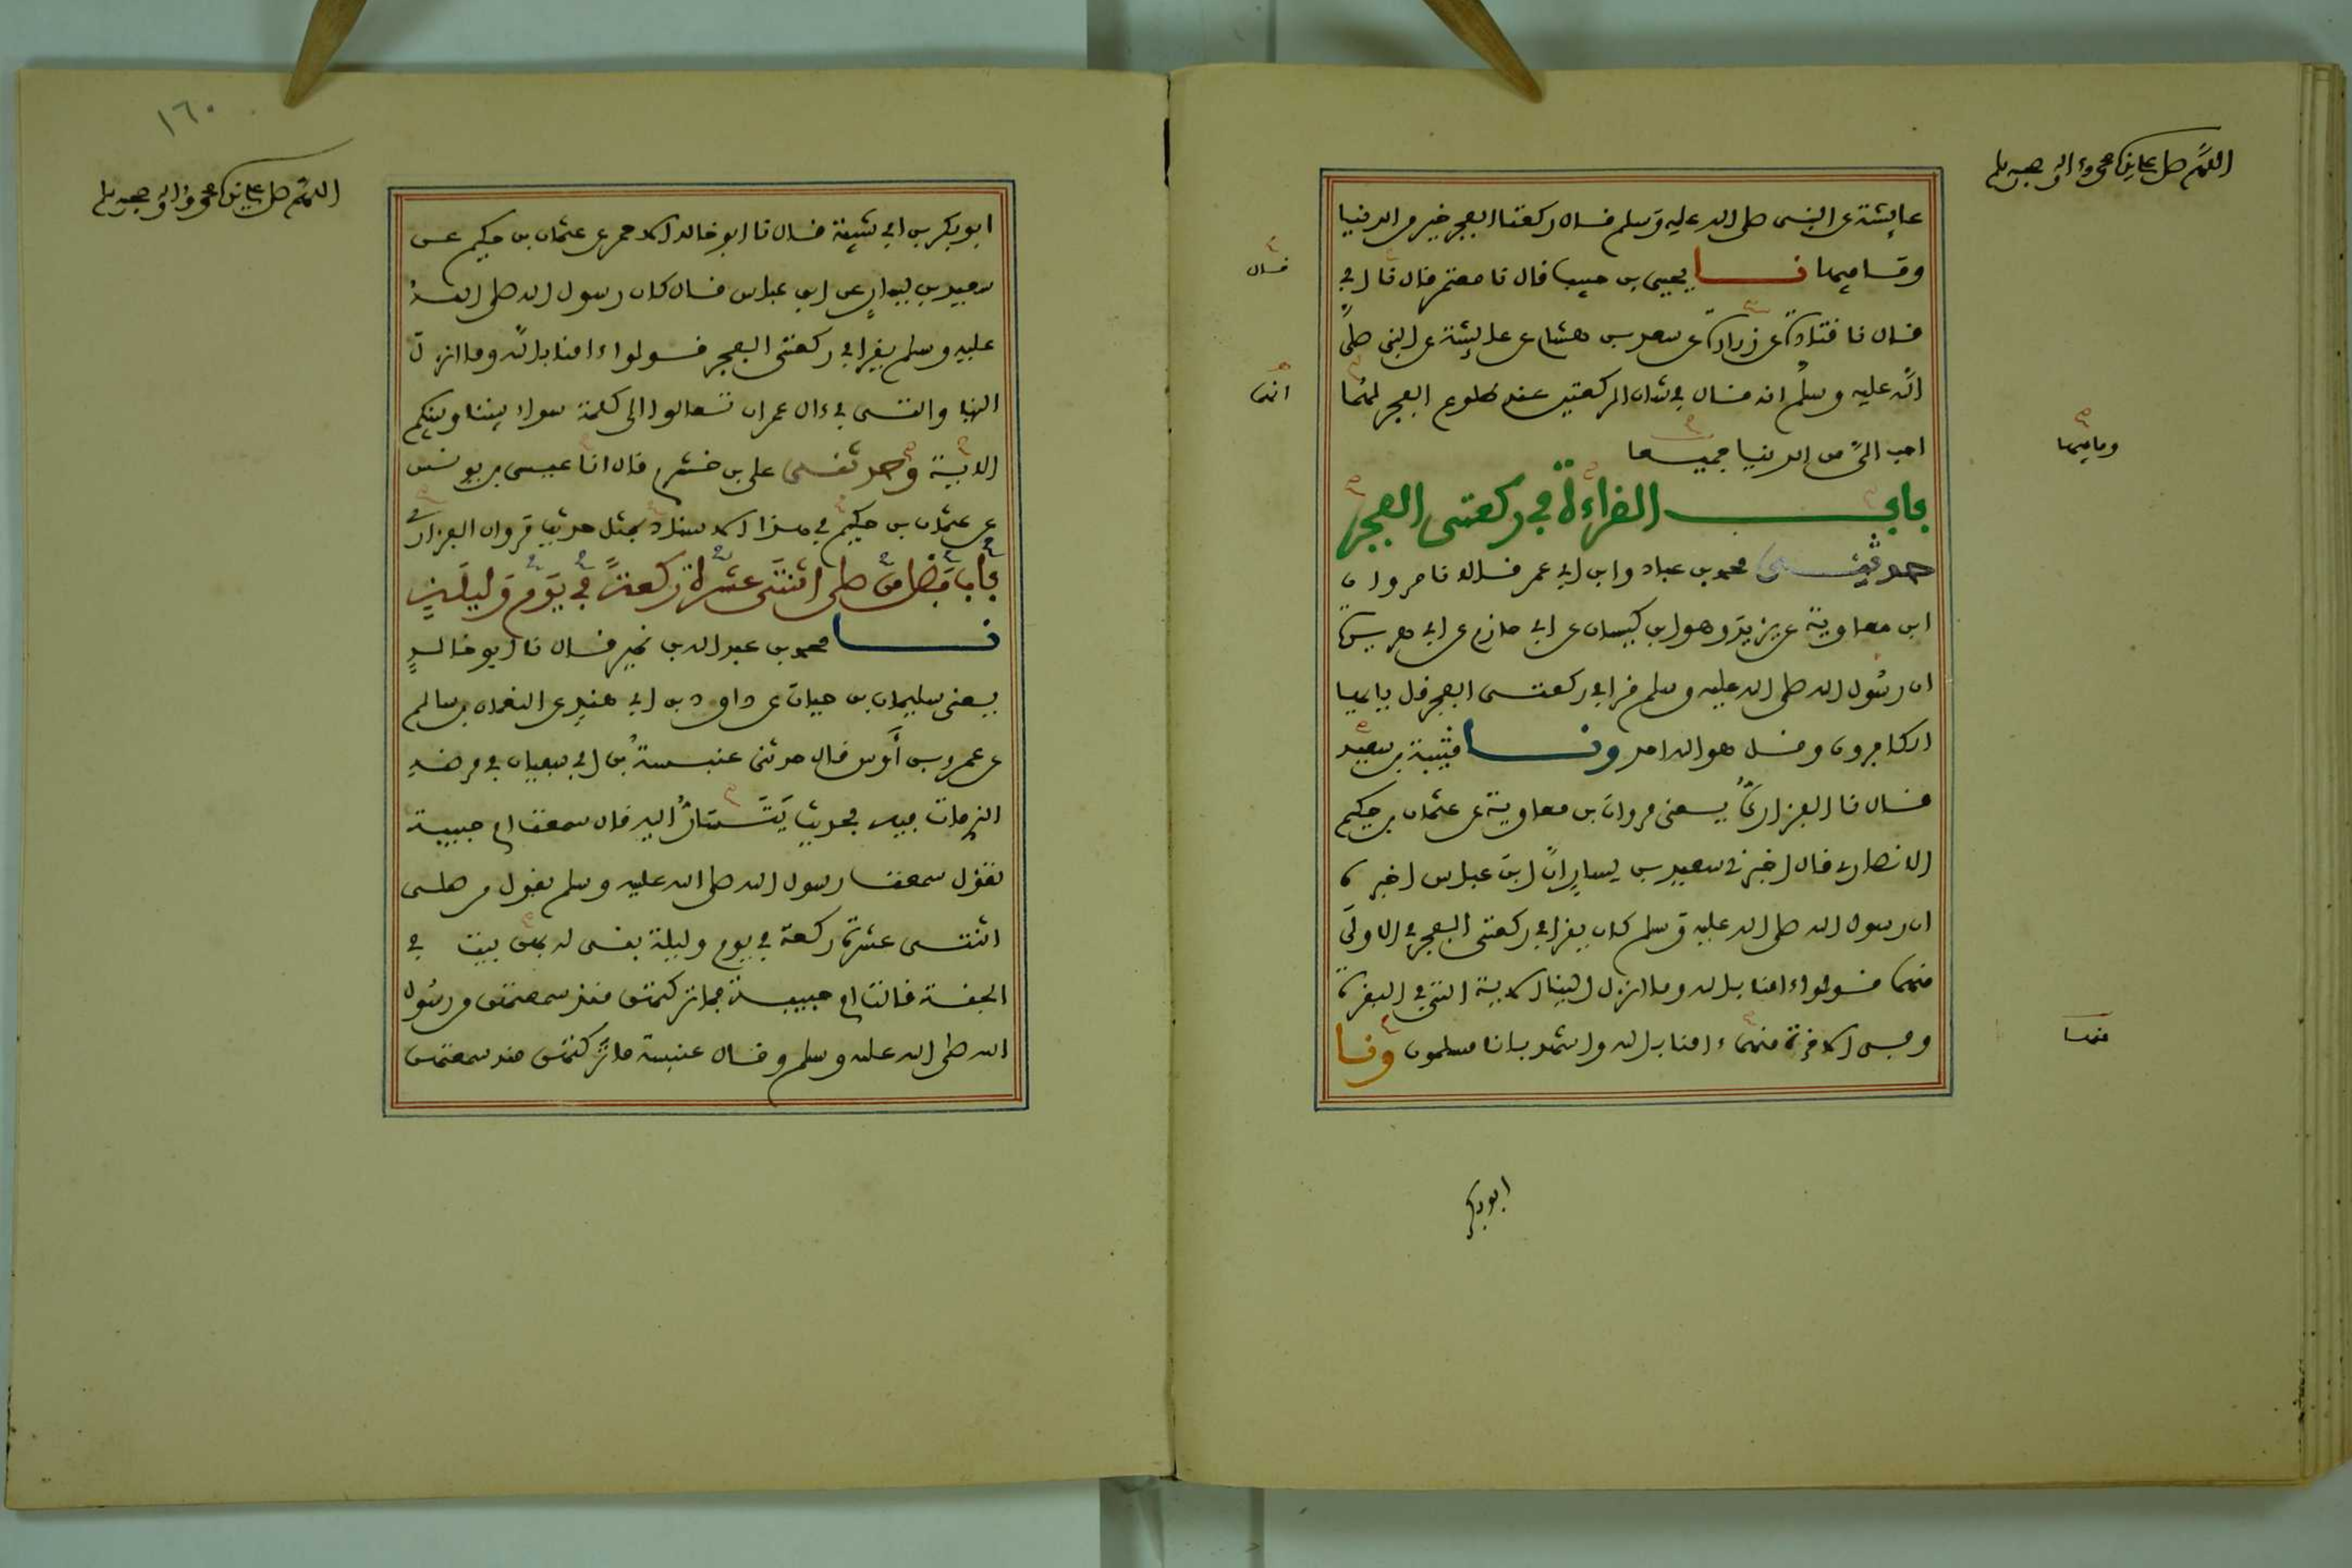 اللهم صل على سيدنا محمد واله وصحبه وسلم
عايشة عن النبي صلى الله عليه وسلم قال ركعتا الفجر خير من الدنيا
وما فيها نا يحيى بن حبيب قال نا معتمر قال نا ابي
قال
قال نا قتادة عن زرارة عن سعد بن هشام عن عايشة عن النبي صلى
الله عليه وسلم انه قال في شان الركعتين عند طلوع الفجر لهما
انهما
احب الي من الدنيا جميعا
وما فيها
باب القراءة في ركعتي الفجر
حدثني محمد بن عباد وابن ابي عمر قالا نا مروان
ابن معاوية عن يزيد وهو ابن كيسان عن ابي حازم عن ابي هريرة
ان رسول الله صلى الله عليه وسلم قرا في ركعتي الفجر قل يا ايها
الكافرون وقل هو الله احد ونا قتيبة بن سعيد
قال نا الفزاري يعني مروان بن معاوية عن عثمان بن حكيم
الانصاري قال اخبرني سعيد بن يسار ان ابن عباس اخبره
ان رسول الله صلى الله عليه وسلم كان يقرا في ركعتي الفجر في الاولى
منهما قولوا ءامنا بالله وما انزل الينا الاية التي في البقرة
وفي الاخرة منهما ءامنا بالله واشهد بانا مسلمون ونا
منهما
ابو بكر
١٦٠
اللهم صل على سيدنا محمد واله وصحبه وسلم
ابو بكر بن ابي شيبة قال نا ابو خالد الاحمر عن عثمان بن حكيم عن
سعيد بن يسار عن ابن عباس قال كان رسول الله صلى الله
عليه وسلم يقرا في ركعتي الفجر قولوا ءامنا بالله وما انزل
الينا والتي في ءال عمران تعالوا الى كلمة سواء بيننا وبينكم
الاية وحدثني علي بن خشرم قال انا عيسى بن يونس
عن عثمان بن حكيم في هذا الاسناد بمثل حديث مروان الفزاري
باب فضل من صلى اثنتي عشرة ركعة في يوم وليلة
نا محمد بن عبد الله بن نمير قال نا ابو خالد
يعني سليمان بن حيان عن داود بن ابي هند عن النعمان بن سالم
عن عمرو بن أوس قال حدثني عنبسة بن ابي سفيان في مرضه
الذي مات فيه بحديث يتسار اليه قال سمعت ام حبيبة
تقول سمعت رسول الله صلى الله عليه وسلم يقول من صلى
اثنتي عشرة ركعة في يوم وليلة بني له بهن بيت في
الجنة قالت ام حبيبة فما تركتهن منذ سمعتهن من رسول
الله صلى الله عليه وسلم وقال عنبسة ما تركتهن منذ سمعتهن